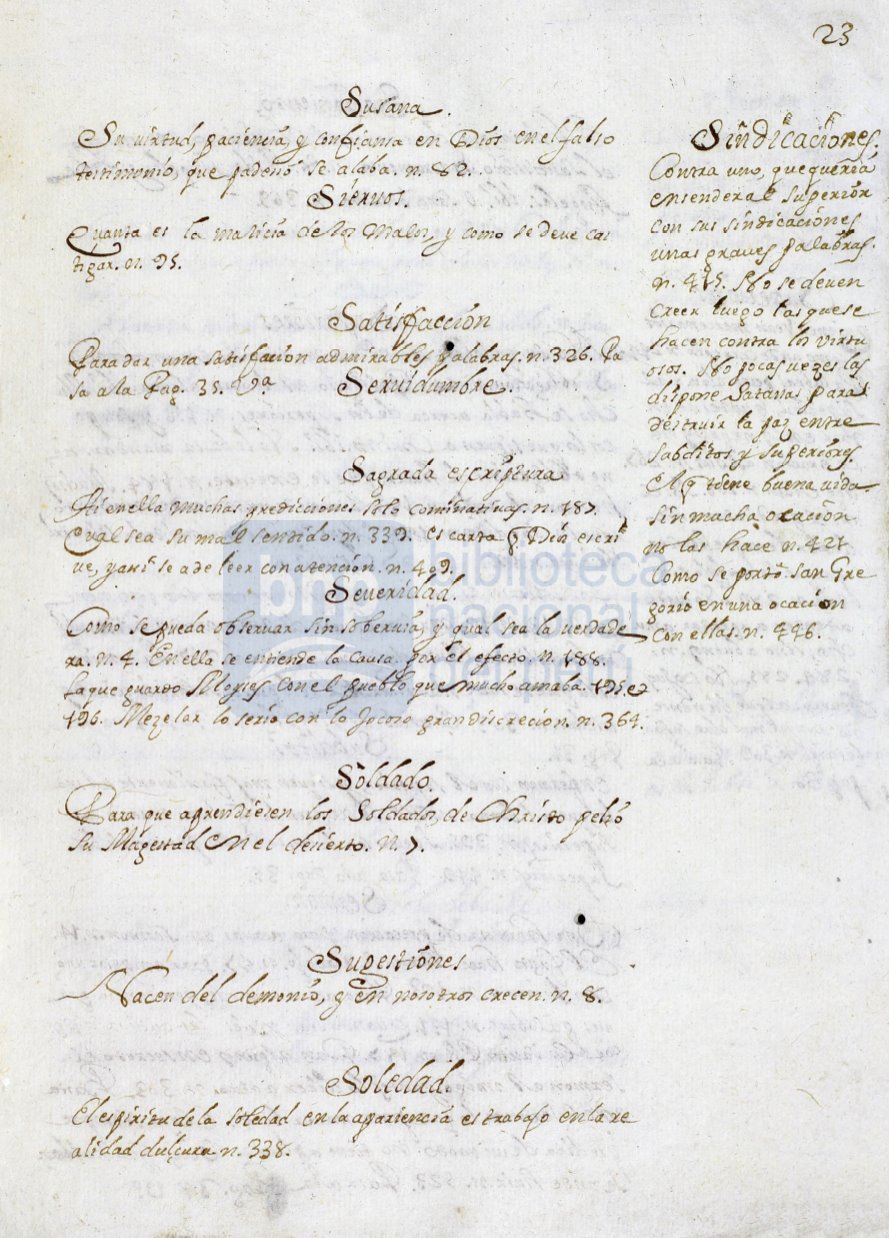 23
Susana.
Su virtud, paciencia, y confiansa en Dios en el falso
testimonio, que padeció se alaba. n. 82.
Sieruos.
Quanta es la malicia de los malos, y como se deve cas
tigar. n. 95.
Satisfaccion
Para dar una satisfacion admirables palabras. n. 326. Pa
sa a la Pag. 35. Va
Seruidumbre.
Sagrada escriptura
Ai en ella muchas predicciones solo cominativas. n. 187.
Qual sea su mal sentido. n. 339. es carta q Dios escri
ue, y assi se a de leer con atencion. n. 409.
Seueridad.
Como se pueda obseruar sin soberuia, y qual sea la verdade
ra. n. 4. En ella se entiende la causa por el efecto. n. 188.
La que guardo Moyses con el pueblo que mucho amaba. 195 e
196. Mezclar lo serio con lo Jocoso gran discrecion. n. 364.
Soldado.
Para que aprendiesen los Soldados de Christo peleó
Su Magestad en el decierto. n. 7.
Sugestiones
Nacen del demonio, y en nosotros crecen. n. 8.
Soledad.
El espiritu de la soledad en la apariencia es trabajo en la re
alidad dulçura n. 338.
Sindicaciones.
Contra uno, que queria
ensender al Superior
con sus sindicaciones
unas graves palabras.
n. 415. No se deven
creer luego las que se
hacen contra los virtu
osos. No pocas vezes las
dispone Satanas para
destruir la paz entre
Subditos, y Superiores.
El q tiene buena vida
sin mucha ocacion
no las hace n. 421
Como se portó san Gre
gorio en una ocacion
con ellas. n. 446.
bnp
biblioteca
nacional
del perú